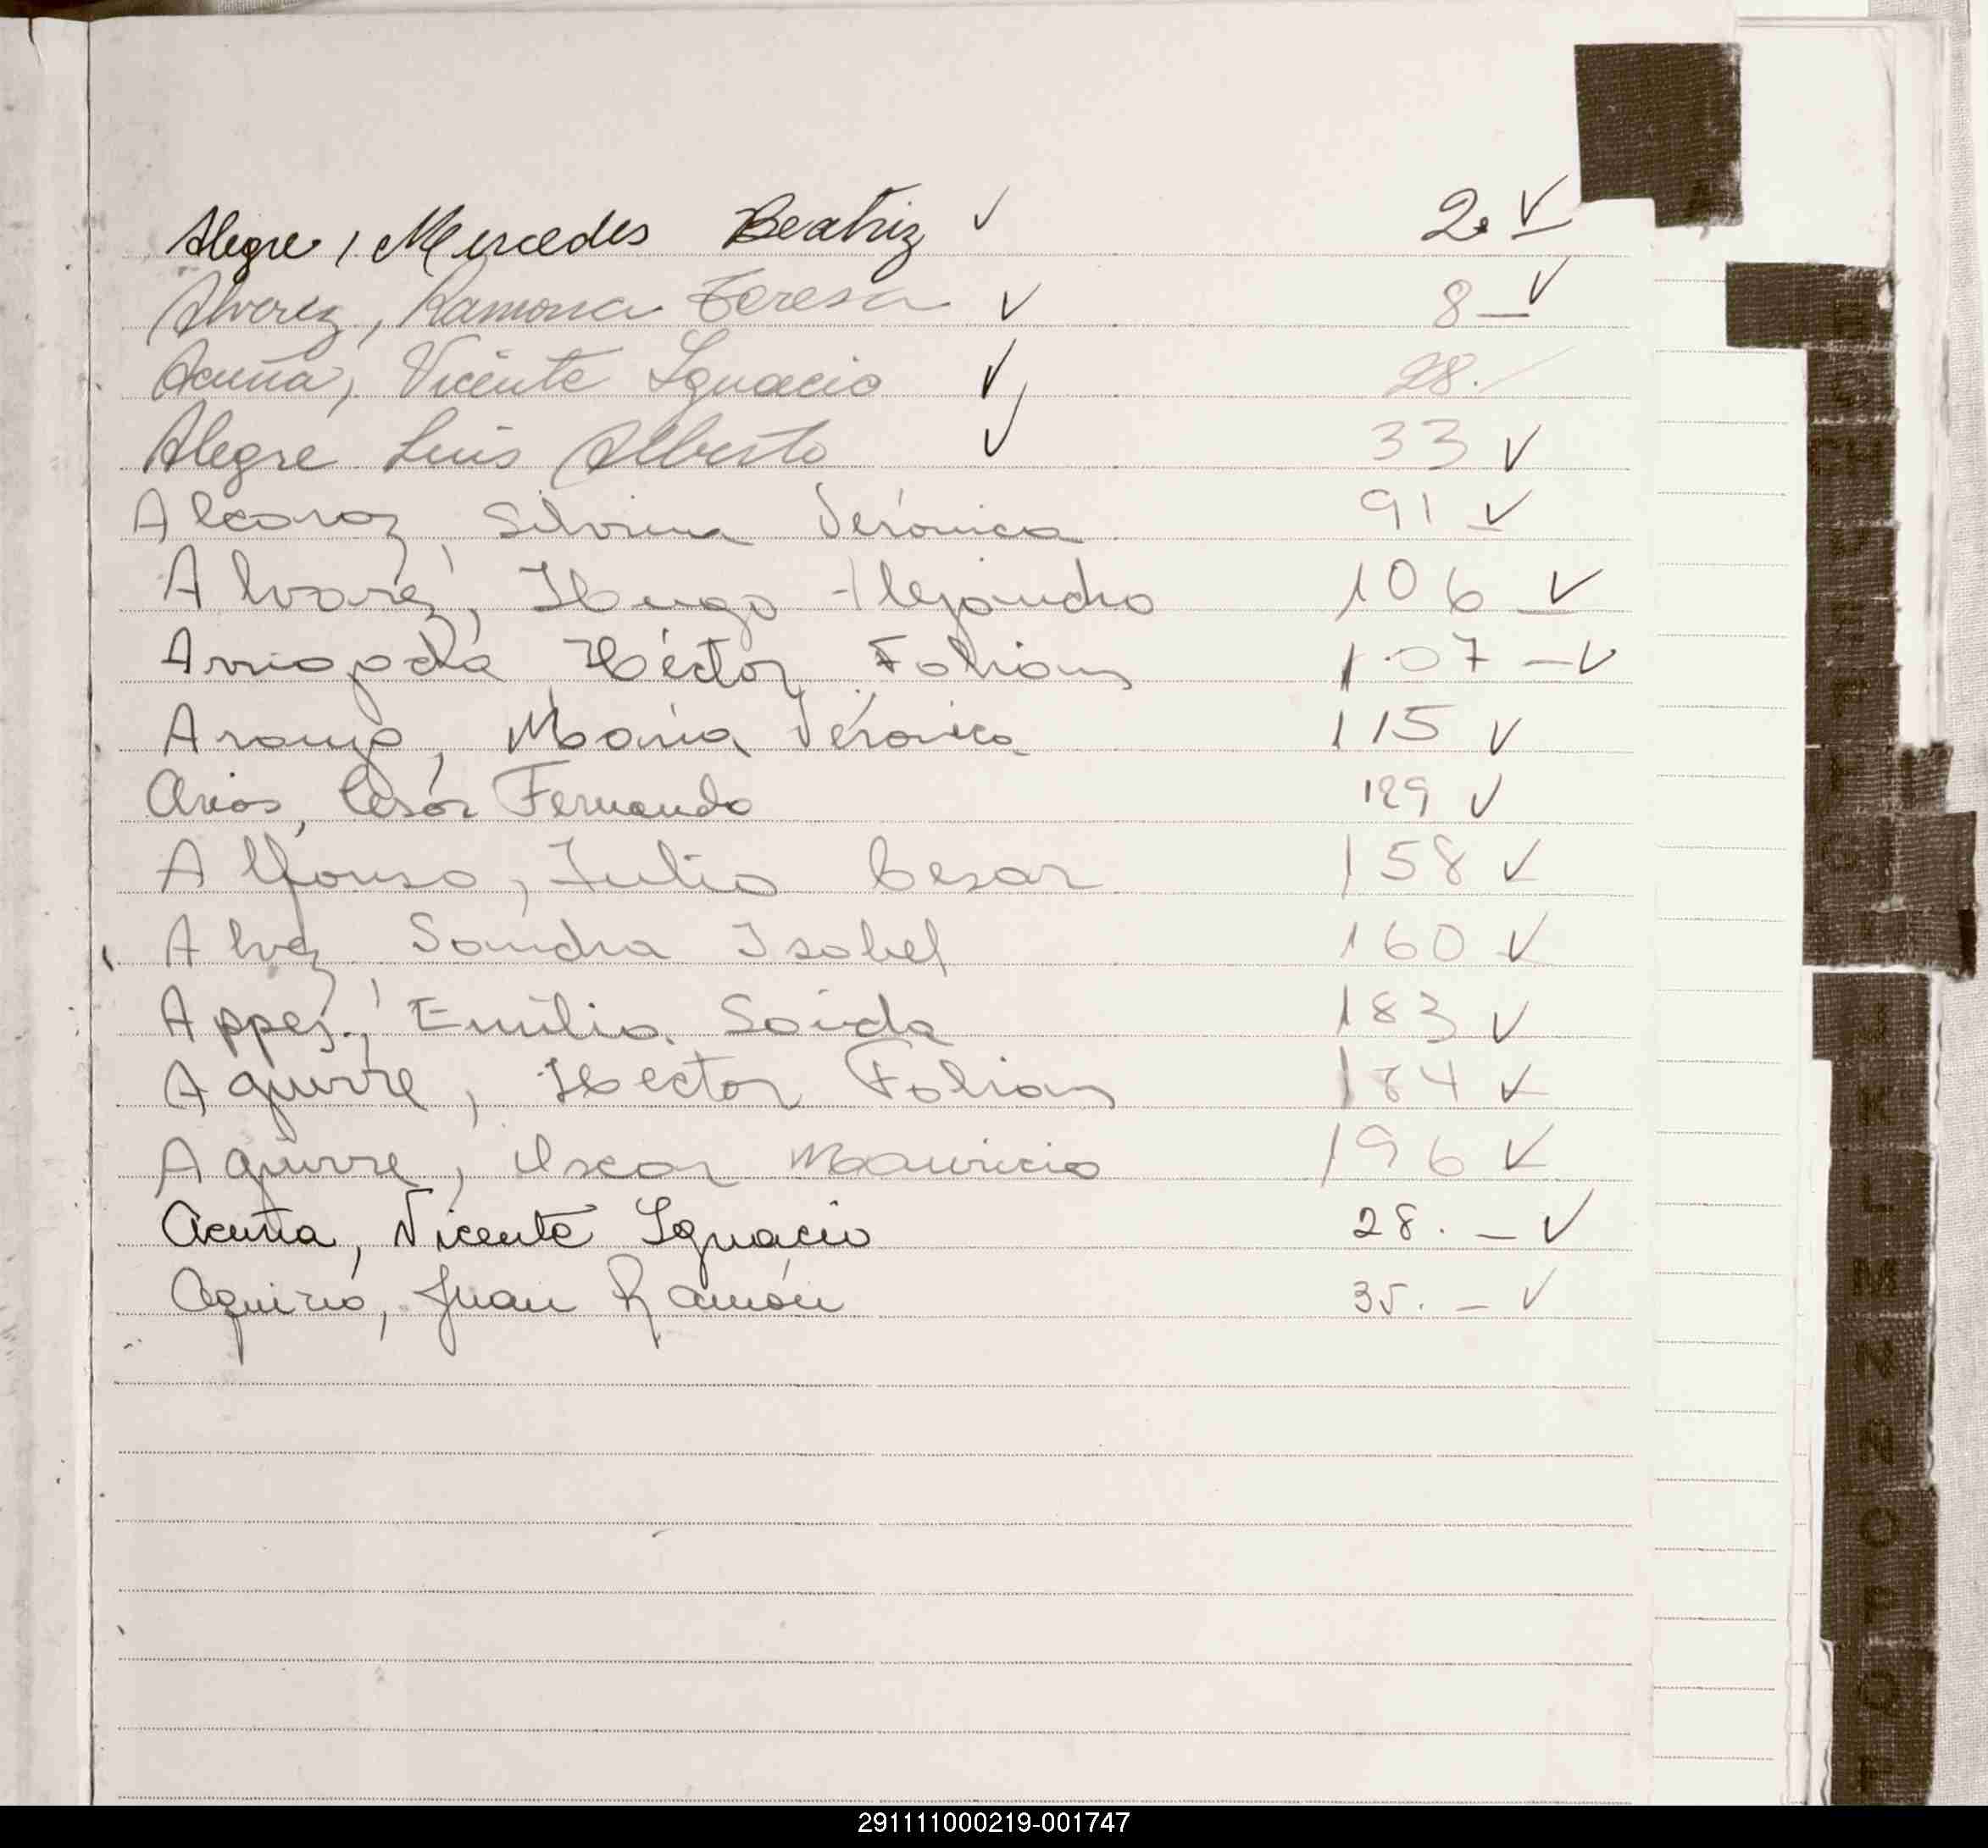 Alegre, Mercedes Beatriz ✓ 2. ✓
Alverez, Ramona Teresa ✓ 8 — ✓
Acuña, Vicente Ignacio ✓ 28.
Alegre Luis Alberto ✓ 33 ✓
Alcaraz, Silvina Verónica 91 ✓
Alvarez, Hugo Alejandro 106 ✓
Héctor Fabian 107 — ✓
Araujo, María Verónica 115 ✓
Arias, César Fernando 129 ✓
Alfonso, Julio Cesar 158 ✓
Alvez, Sandra Isabel 160 ✓
Emilia 183 ✓
Aguirre, Hector Fabian 184 ✓
Aguirre, Oscar Mauricio 196 ✓
Acuña, Vicente Ignacio 28. — ✓
Juan Ramón 35. — ✓
K
L
M
N
Ñ
O
P
Q
291111000219-001747